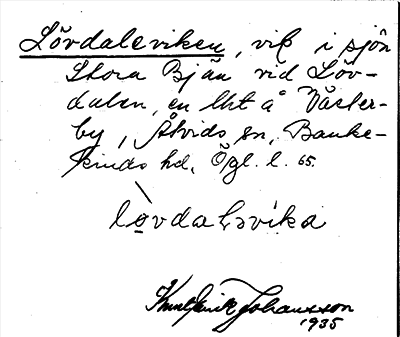 Lövdaleviken, vik i sjön
Stora Bjän vid Löv-
dalen, en lht å Väster-
by, Åtvids sn, Banke-
kinds hd, Ögl. l. 65.
lövdalsvika
Knut Johansson
1935